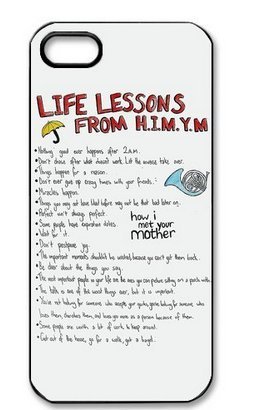 LIFE LESSONS
FROM H.I.M.Y.M
• Nothing good ever happens after 2 a.m.
• Don't chase after what doesn't work. Let the universe take over.
• Things happen for a reason.
• Don't ever give up crazy times with your friends.
• Miracles happen.
• Things you may not have liked before may not be that bad later on.
• Perfect isn't always perfect.
• Some people have expiration dates.
• Wait for it.
• Don't postpone joy.
• The important moments shouldn't be wasted, because you can't get them back.
• Be clear about the things you say.
• The most important people in your life are the ones you can picture sitting on a porch with.
• The truth is one of the worst things ever, but it is important.
• You're not looking for someone who accepts your quirks, you're looking for someone who
loves them, cherishes them, and loves you more as a person because of them.
• Some people are worth a lot of work to keep around.
• Get out of the house, go for a walk, get a bagel.
how i
met your
mother